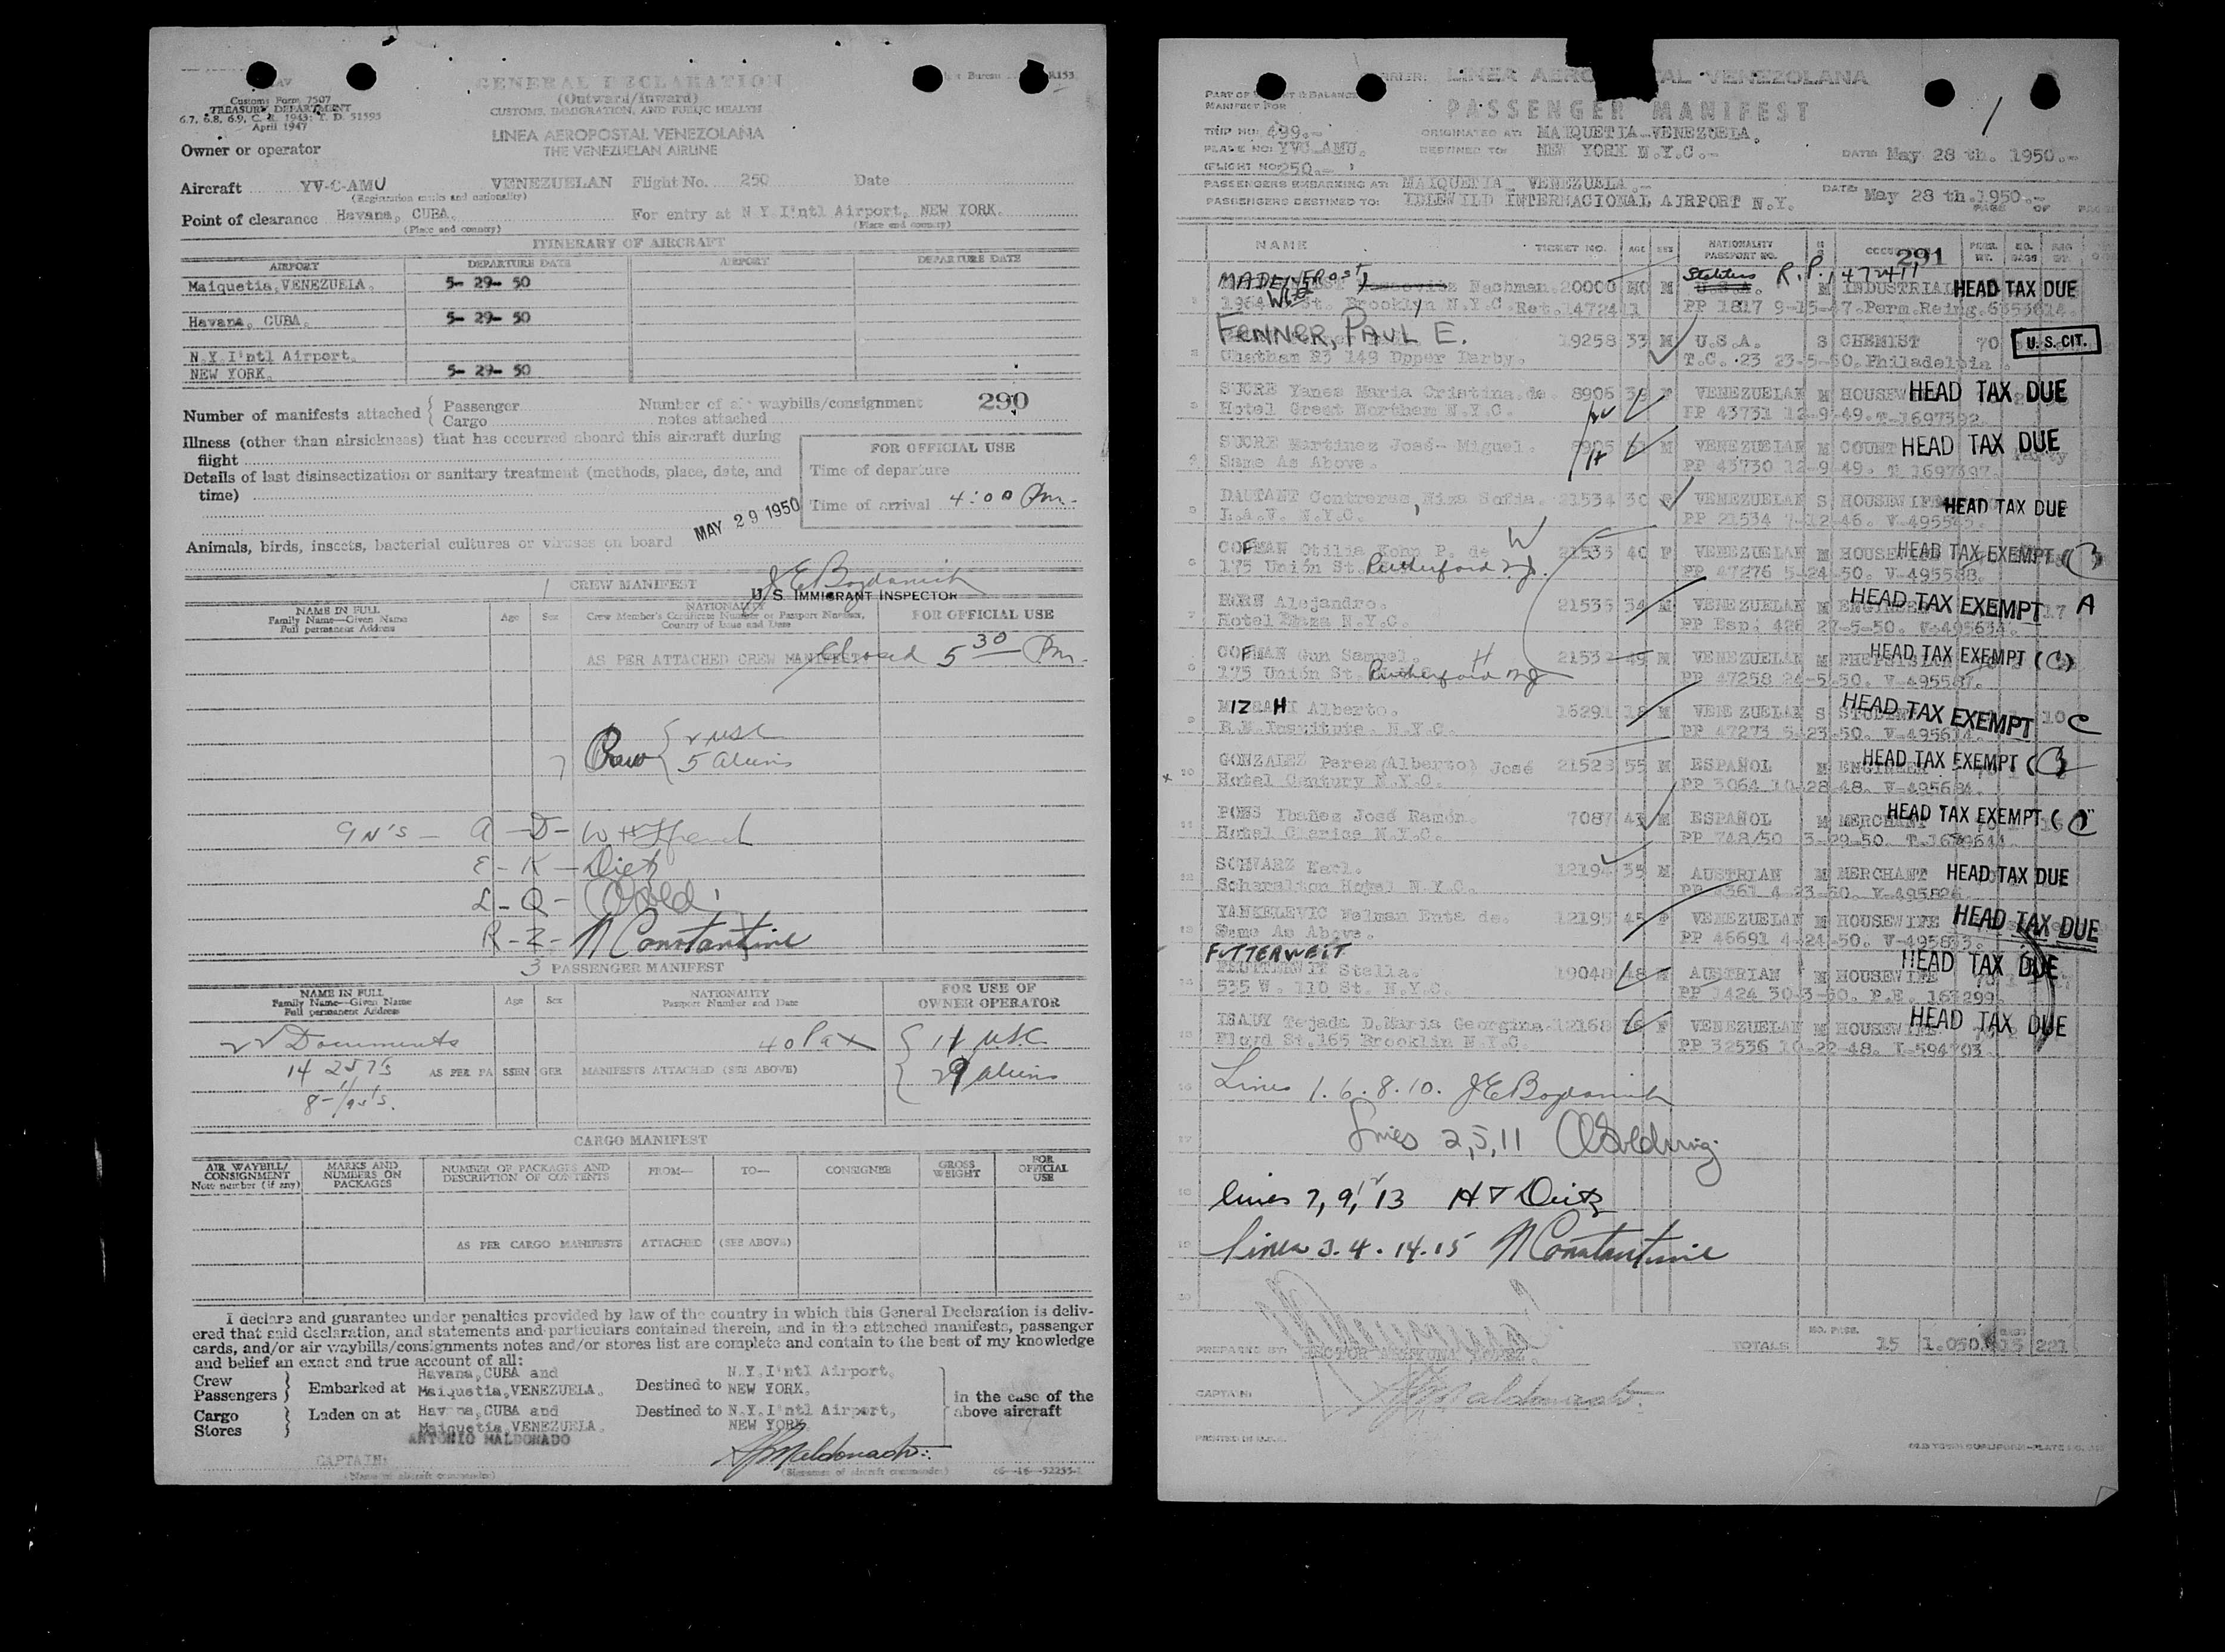 GENERAL DECLARATION
(Outward/Inward)
CUSTOMS, IMMIGRATION, AND PUBLIC HEALTH
Customs Form 7507
TREASURY DEPARTMENT
6.7, 6.8, 6.9, C. R. 1943; T. D. 51595
April 1947
LINEA AEROPOSTAL VENEZOLANA
THE VENEZUELAN AIRLINE
Owner or operator
Aircraft YV-C-AMU VENEZUELAN Flight No. 250 Date
(Registration marks and nationality)
Point of clearance Havana, CUBA. For entry at N Y I'ntl Airport, NEW YORK.
(Place and country) (Place and country)
ITINERARY OF AIRCRAFT
AIRPORT DEPARTURE DATE AIRPORT DEPARTURE DATE
Maiquetia, VENEZUELA. 5- 29- 50
Havana, CUBA. 5- 29- 50
N.Y.I'ntl Airport.
NEW YORK. 5- 29- 50
Number of manifests attached { Passenger
Cargo
Number of air waybills/consignment
notes attached
290
Illness (other than airsickness) that has occurred aboard this aircraft during
flight
Details of last disinsectization or sanitary treatment (methods, place, date, and
time)
FOR OFFICIAL USE
Time of departure
Time of arrival 4:00 Pm.
MAY 29 1950
Animals, birds, insects, bacterial cultures or viruses on board
1 CREW MANIFEST
J E Bogdanich
U. S. IMMIGRANT INSPECTOR
NAME IN FULL
Family Name—Given Name
Full permanent Address
Age Sex
NATIONALITY
Crew Member's Certificate Number or Passport Number,
Country of Issue and Date
FOR OFFICIAL USE
AS PER ATTACHED CREW MANIFEST
Closed 5 30 Pm.
7 Crew { 2 USC
5 aliens
9 N'S - A - D -
E - K - Dietz
L - Q -
R - Z - N Constantine
3 PASSENGER MANIFEST
NAME IN FULL
Family Name—Given Name
Full permanent Address
Age Sex
NATIONALITY
Passport Number and Date
FOR USE OF
OWNER OPERATOR
22 Documents 40 Pax { 11 USC
14 257's AS PER PASSENGER MANIFESTS ATTACHED (SEE ABOVE) { 29 aliens
CARGO MANIFEST
AIR WAYBILL/
CONSIGNMENT
Note number (if any)
MARKS AND
NUMBERS ON
PACKAGES
NUMBER OF PACKAGES AND
DESCRIPTION OF CONTENTS
FROM— TO— CONSIGNEE
GROSS
WEIGHT
FOR
OFFICIAL
USE
AS PER CARGO MANIFESTS ATTACHED (SEE ABOVE)
I declare and guarantee under penalties provided by law of the country in which this General Declaration is deliv-
ered that said declaration, and statements and particulars contained therein, and in the attached manifests, passenger
cards, and/or air waybills/consignments notes and/or stores list are complete and contain to the best of my knowledge
and belief an exact and true account of all:
Crew
Passengers } Embarked at Havana, CUBA and
Maiquetia, VENEZUELA. Destined to N.Y.I'ntl Airport,
NEW YORK.
Cargo
Stores } Laden on at Havana, CUBA and
Maiquetia, VENEZUELA. Destined to N.Y.I'ntl Airport,
NEW YORK
in the case of the
above aircraft
ANTONIO MALDONADO
CAPTAIN:
(Name of aircraft commander)
(Signature of aircraft commander)
LINEA AEROPOSTAL VENEZOLANA
PASSENGER MANIFEST
MANIFEST FOR
TRIP NO: 499.- ORIGINATED AT: MAIQUETIA-VENEZUELA.
PLANE NO: YVC-AMU. DESTINED TO: NEW YORK N.Y.C.- DATE: May 28 th. 1950.-
(FLIGHT NO: 250.- )
PASSENGERS EMBARKING AT: MAIQUETIA VENEZUELA.- DATE: May 28 th.1950.-
PASSENGERS DESTINED TO: IDLEWILD INTERNACIONAL AIRPORT N.Y. PAGE OF PAGES
NAME TICKET NO. AGE SEX NATIONALITY
PASSPORT NO. 291
Nachman. 20000 M Stateless R.P. 1472411 M INDUSTRIAL HEAD TAX DUE
1964 St. Brooklin N.Y.C. Ret. 1472411 PP 1817 9-15-47. Perm. Reing.
FENNER, PAUL E. 19258 33 M U.S.A. S CHEMIST 70 U. S. CIT.
Chatham R3 149 Upper Darby. T.C. 23 23-5-50. Philadelpia.
SUCRE Yanes Maria Cristina de. 8906 39 F VENEZUELAN M HOUSEW HEAD TAX DUE
Hotel Great Northem N.Y.C. PP 43731 12-9-49. T-1697392.
SUCRE Martinez José- Miguel. 8905 M VENEZUELAN M HEAD TAX DUE
Same As Above. PP 43730 12-9-49. T 1697397.
DAUTANT Contreras, Niza Sofia. 21534 30 F VENEZUELAN S HOUSEWIFE HEAD TAX DUE
L.A.V. N.Y.C. PP 21534 7-12-46. V-495545.
COFMAN Otilia Kohn P. de W 21535 40 F VENEZUELAN M HOUSE HEAD TAX EXEMPT (B)
175 Unión St. Rutherford N.J. PP 47276 5-24-50. V-495588.
HORN Alejandro. 21533 34 M VENEZUELAN M ENGINEER HEAD TAX EXEMPT 17 A
Hotel Plaza N.Y.C. PP Esp. 426 27-5-50. V-495634.
COFMAN Gun Samuel. H 21532 49 M VENEZUELAN M HEAD TAX EXEMPT (C)
175 Unión St. Rutherford NJ PP 47258 24-5-50. V-495587.
MIZRAHI Alberto. 16291 18 M VENEZUELAN S STUDENT HEAD TAX EXEMPT 10 C
R.E. Institute. N.Y.C. PP 47273 5-23-50. V-495614.
GONZALEZ Perez (Alberto) José 21528 55 M ESPAÑOL M ENGINEER HEAD TAX EXEMPT (B)
Hotel Century N.Y.C. PP 3064 10-28-48. V-495684.
PONS Ibañez José Ramón. 7087 43 M ESPAÑOL M MERCHANT HEAD TAX EXEMPT (C)
Hotel Clarice N.Y.C. PP 748/50 3-29-50.
SCHWARZ Karl. 12194 35 M AUSTRIAN M MERCHANT HEAD TAX DUE
Scheralton Hotel N.Y.C. 4-23-50. V-495826.
YANKELEVIC Welman Enta de. 12195 45 F VENEZUELAN M HOUSEWIFE HEAD TAX DUE
Same As Above. PP 46691 4-24-50. V-495813.
FUTTERWEIT
Stella. 19048 48 F AUSTRIAN M HOUSEWIFE HEAD TAX DUE
535 W. 110 St. N.Y.C. PP 1424 30-3-50. P.E. 167299.
ISADY Tejada D. Maria Georgina 12168 F VENEZUELAN M HOUSEWIFE HEAD TAX DUE
Floyd St. 165 Brooklin N.Y.C. PP 32536 10-22-48. T-594703.
Lines 1. 6. 8. 10. J E Bogdanich
Lines 2, 5, 11 Golding
lines 7, 9, 12 13 H T Dietz
lines 3. 4. 14. 15 N Constantine
TOTALS NO. PASS. 15 1.050 13 221
PREPARED BY: HECTOR LOPEZ.
CAPTAIN: Maldonado
PRINTED IN U.S.A.